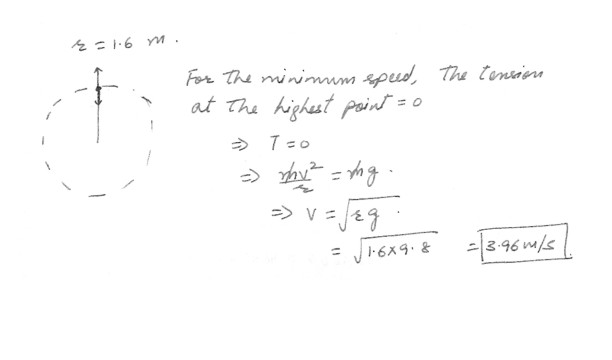 r = 1.6 m.
For The minimum speed, The tension
at The highest point = 0
⇒ T = 0
⇒ mv²/r = mg.
⇒ V = √rg.
= √1.6×9.8 = 3.96 m/s